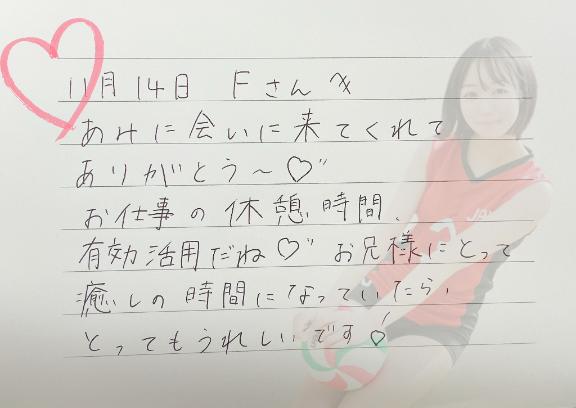 11月14日 Fさんへ
あみに会いに来てくれて
ありがとう～♡"
お仕事の休憩時間、
有効活用だね♡" お兄様にとって
癒しの時間になっていたら、
とってもうれしいです!